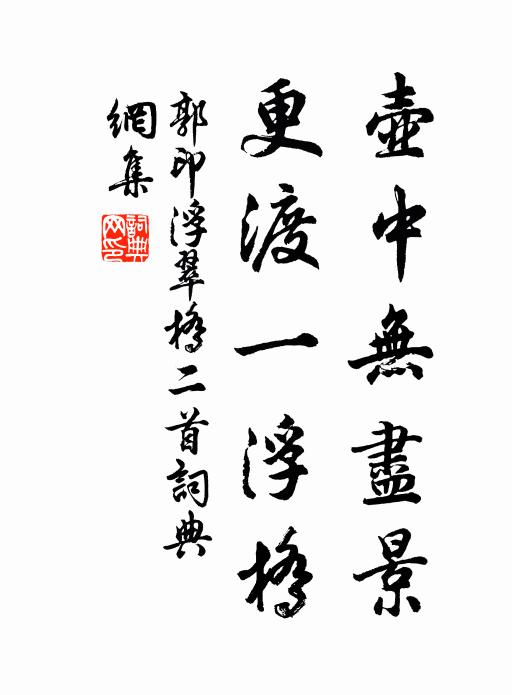 壺中無盡景
更渡一浮橋
郭印浮翠橋二首詞典
網集
詞典网印